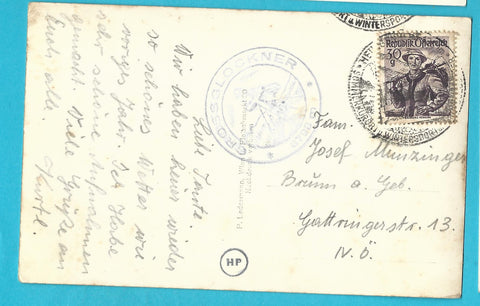 Liebe Tante
Wir haben heuer wieder
so schönes Wetter wie
voriges Jahr. Ich habe
sehr schöne Aufnahmen
gemacht. Viele Grüße an
Euch alle.
Kurtl.
GROSSGLOCKNER
P. Ledermann, Wien
HP
Republik Österreich
30
g
& WINTERSPORT
Fam.
Josef Munzinger
Brunn a. Geb.
Gattringerstr. 13.
N.Ö.